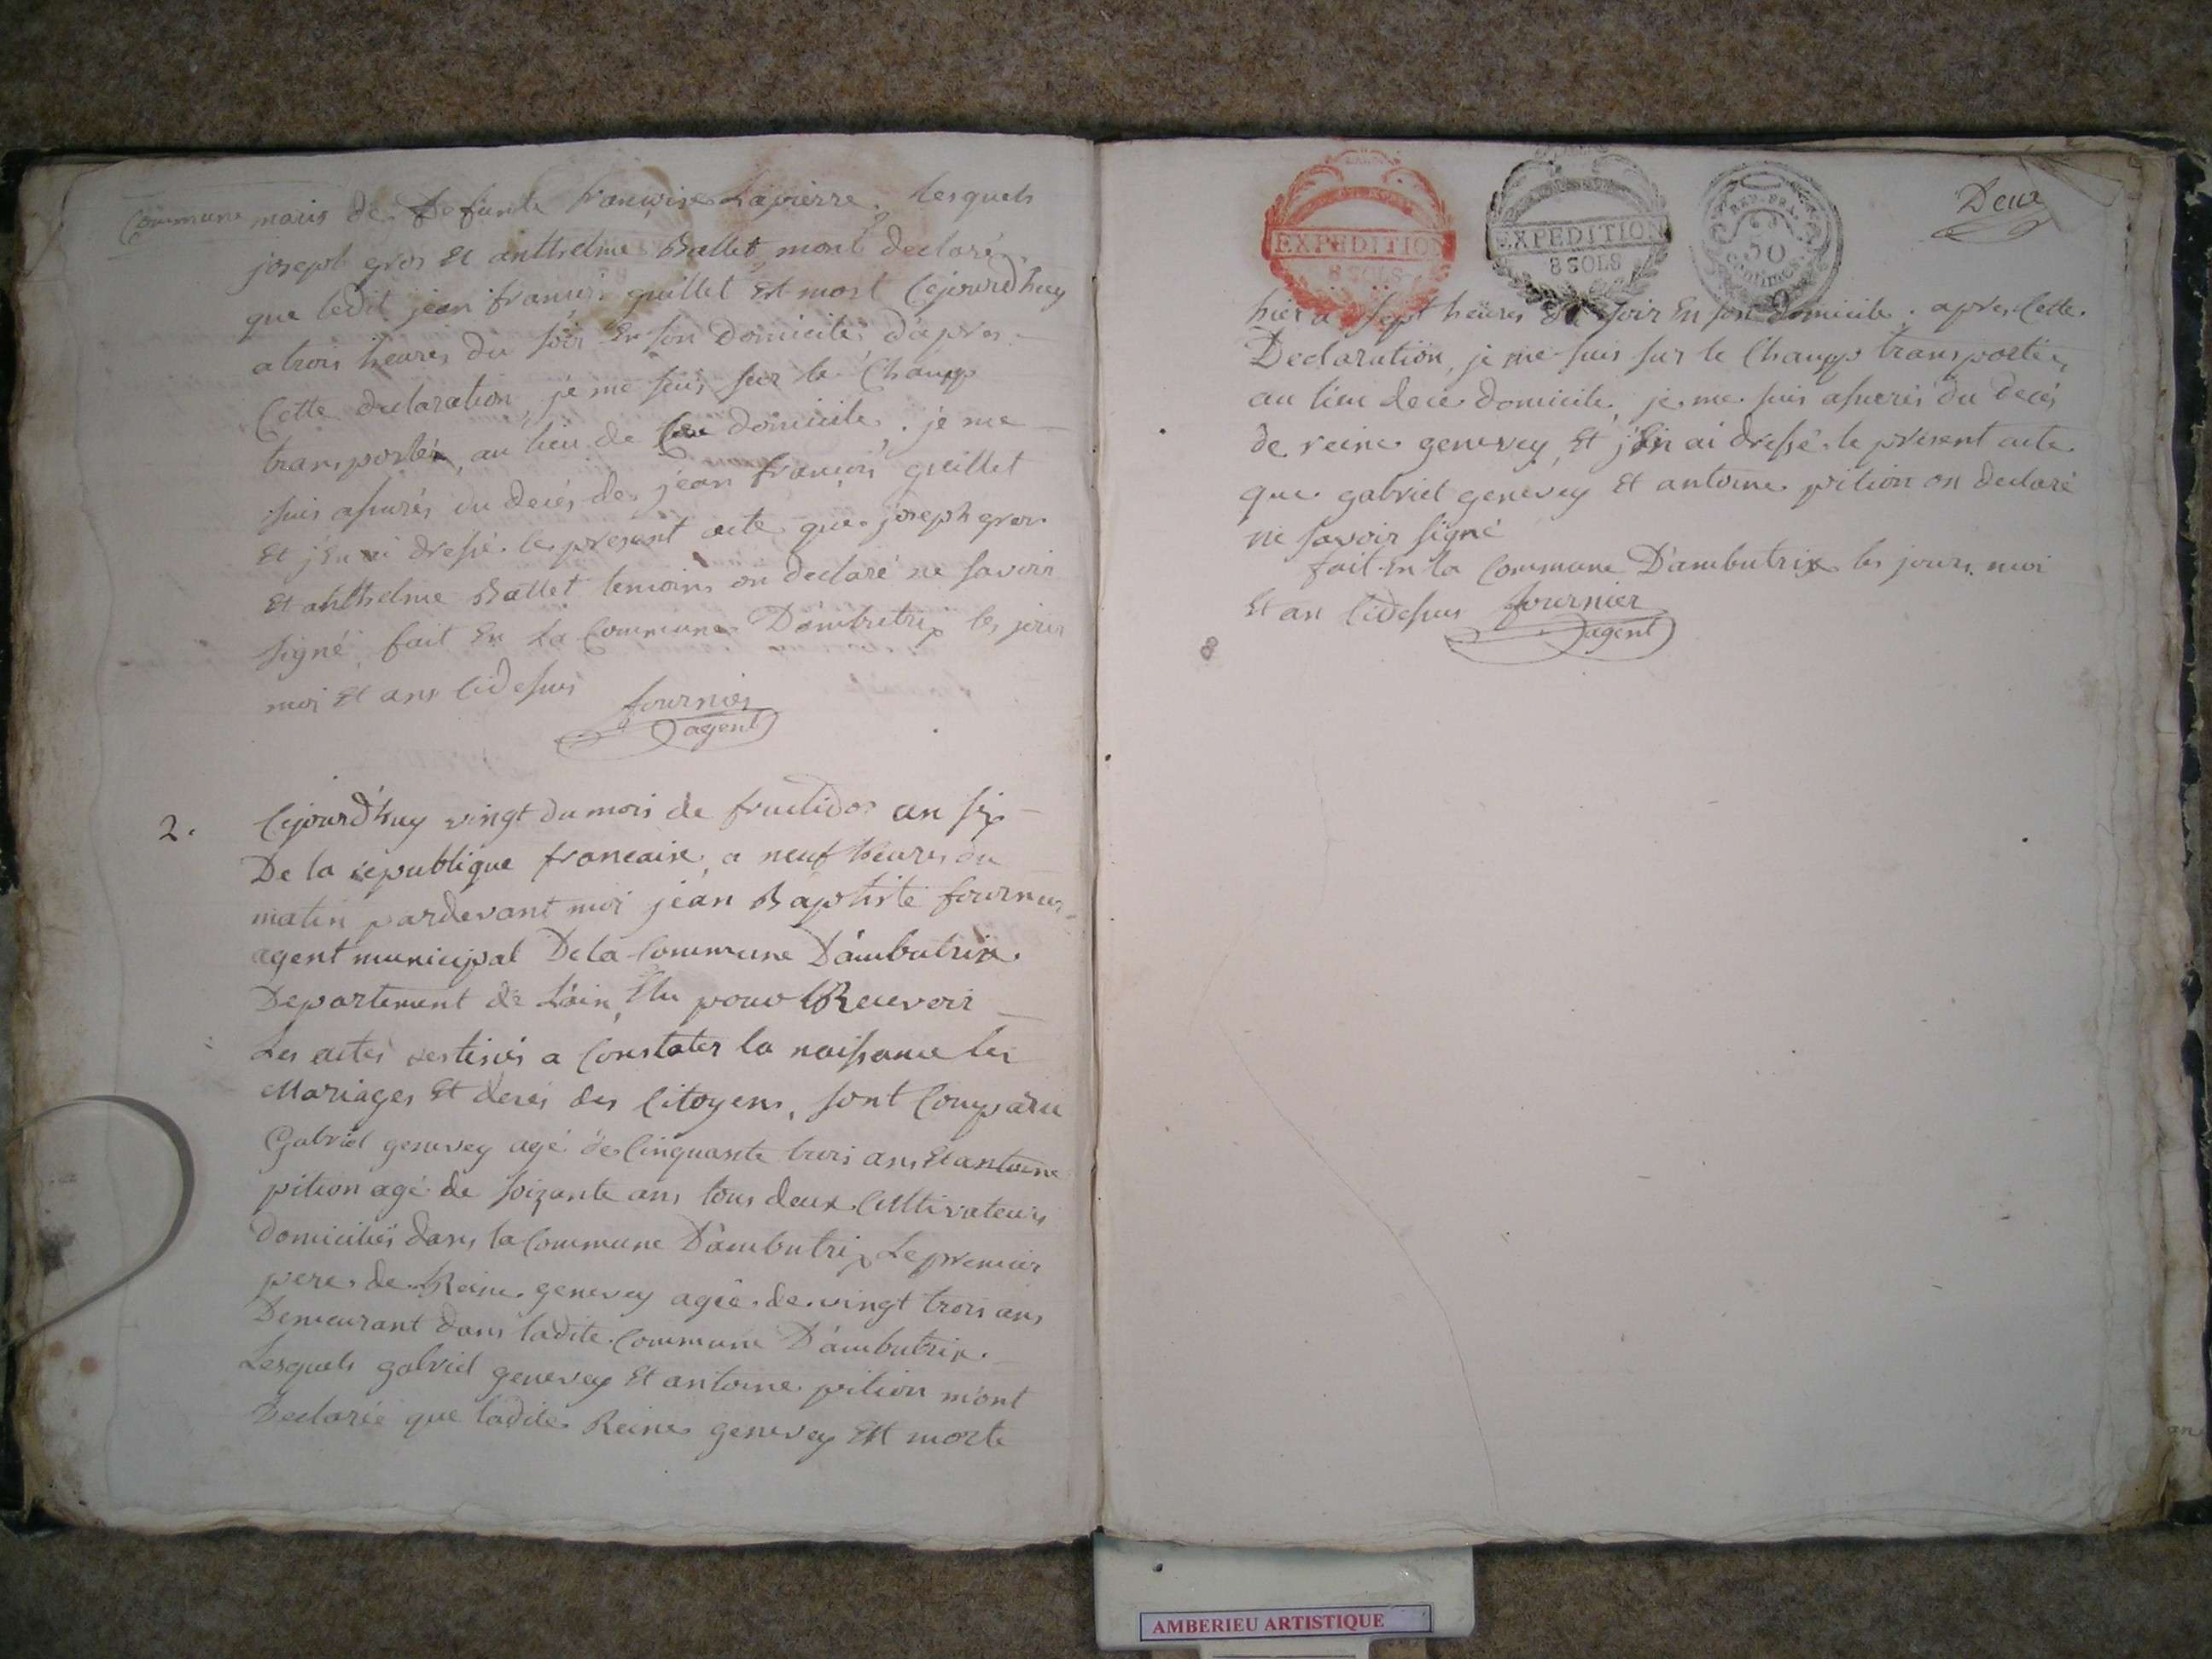 Commune maris de Defunte francoise Lapierre. lesquels
joseph gros et anthelme Ballet mont declaré
que ledit jean francois guillet Est mort Cejourdhuy
a trois heures du soir En son Domicile, d'apres
Cette declaration, je me suis sur le Champ
transportéz, au lieu de domicile. je me
suis assurés du decés de jean francois guillet
Et j'En ai dressé le present acte que joseph gros
Et anthelme Ballet temoins on declaré ne savoir
signé, fait En la Commune D'ambutrix les jour
moi Et ans Cidessus
fournier
agent
2. Cejourd'huy vingt du mois de fructidor an six
De la republique francaise, a neuf heures du
matin pardevant moi jean Baptiste fournier
agent municipal De la Commune D'ambutrix.
Departement de L'ain, Elu pour Recevoir
Les actes destinés a Constater la naissance les
Mariages Et decés des Citoyens, sont Comparu
Gabriel genevey agé de Cinquante trois ans Et antoine
pition agé de soixante ans tous deux Cultivateurs
Domiciliés dans la Commune D'ambutrix Le premier
pere de Reine genevey agée de vingt trois ans
Demeurant dans ladite Commune D'ambutrix.
Lesquels gabriel genevey Et antoine pition m'ont
Declarée que ladite Reine genevey Est morte
EXPEDITION
8 SOLS
EXPEDITION
8 SOLS
REP. FRA.
50
Centimes
Deux
hier a sept heures du soir En son domicile. apres Cette
Declaration, je me suis sur le Champ transportéz
au lieu de ce domicile, je me suis assurés du decés
de reine genevey, Et j'En ai dressé le présent acte
que gabriel genevey Et antoine pition on declaré
ne savoir signé
fait En la Commune D'ambutrix les jours moi
Et an Cidessus fournier
agent
AMBERIEU ARTISTIQUE